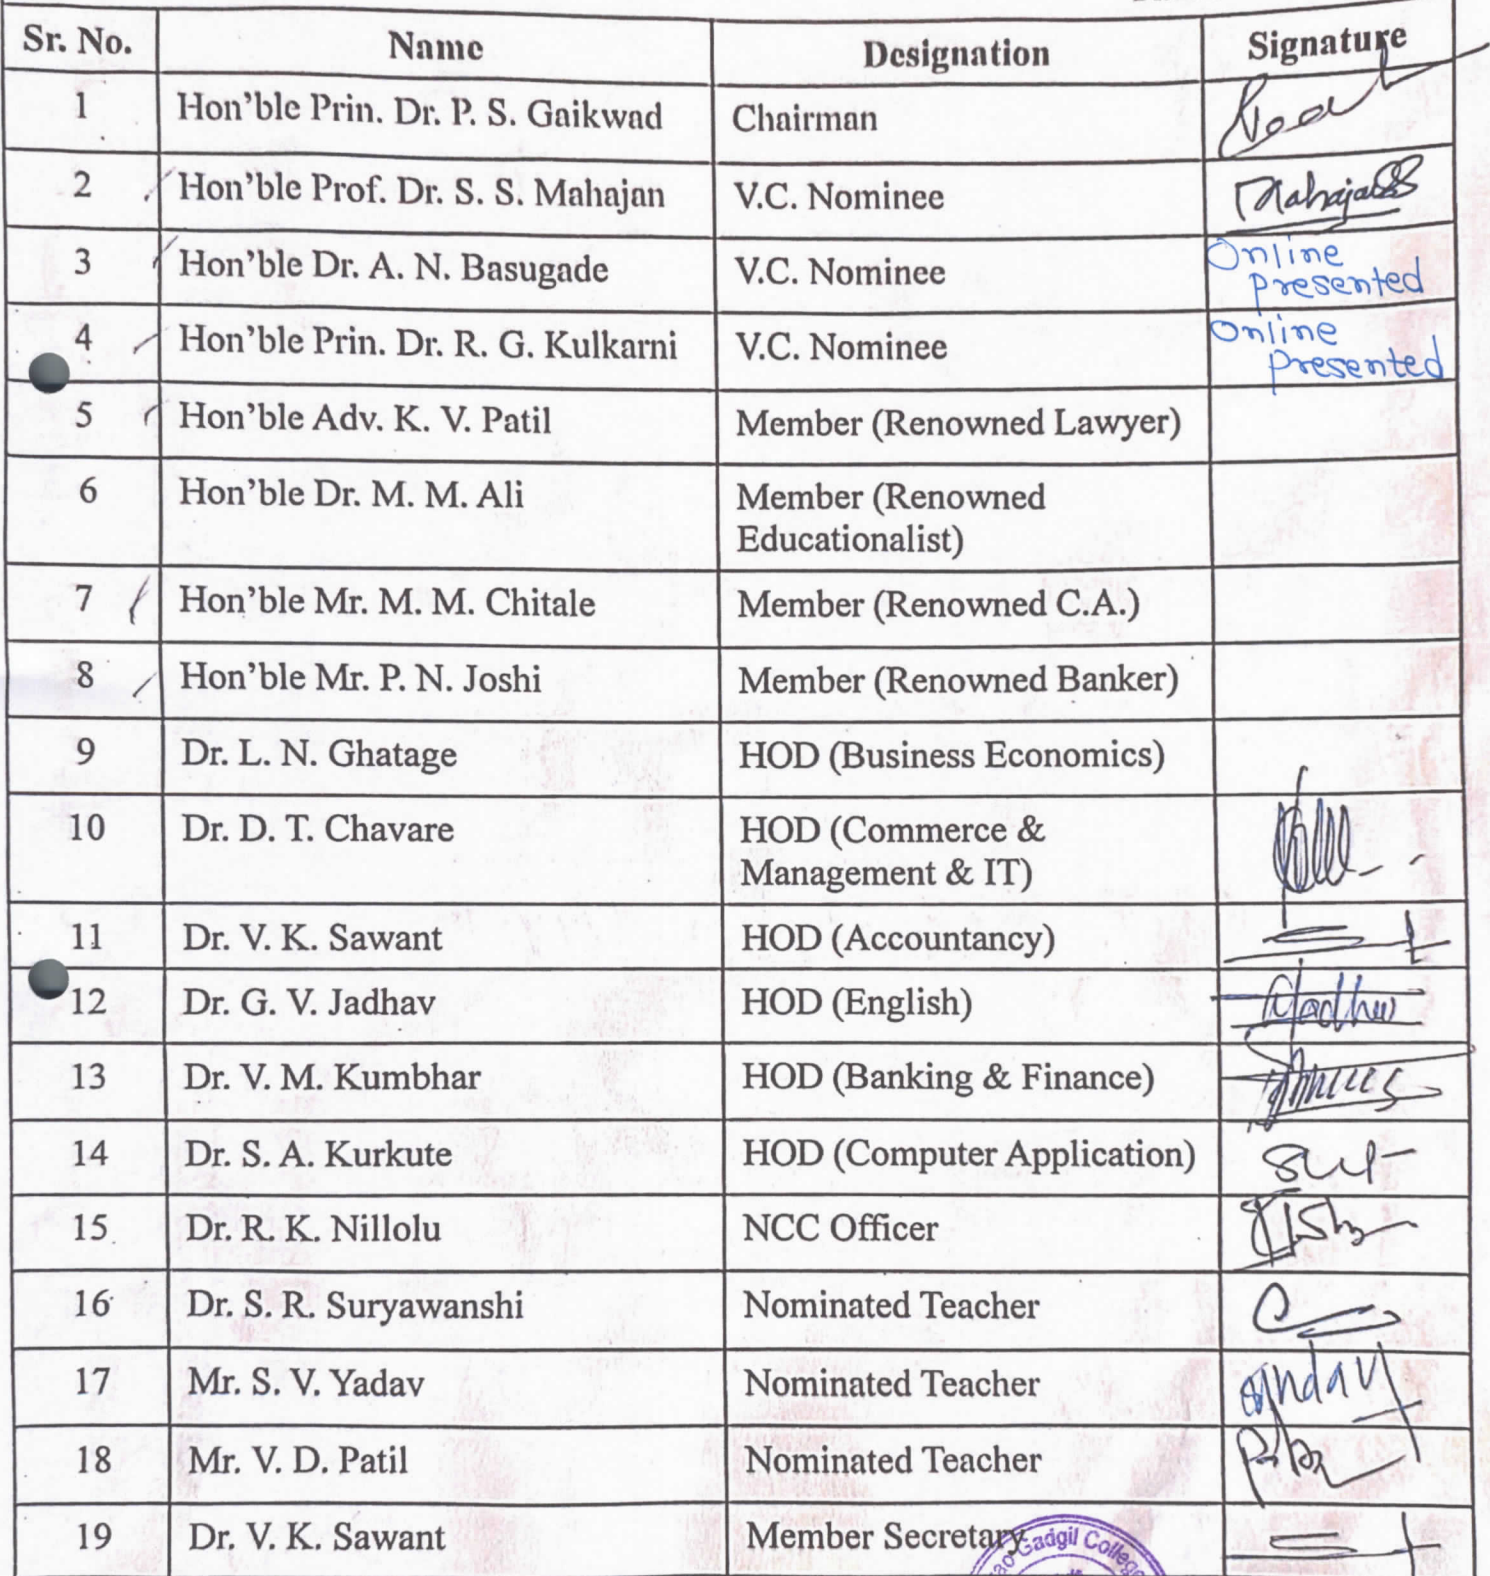 Sr. No. Name Designation Signature
1 Hon'ble Prin. Dr. P. S. Gaikwad Chairman
2 Hon'ble Prof. Dr. S. S. Mahajan V.C. Nominee Mahajan
3 Hon'ble Dr. A. N. Basugade V.C. Nominee Online
Presented
4 Hon'ble Prin. Dr. R. G. Kulkarni V.C. Nominee Online
Presented
5 Hon'ble Adv. K. V. Patil Member (Renowned Lawyer)
6 Hon'ble Dr. M. M. Ali Member (Renowned
Educationalist)
7 Hon'ble Mr. M. M. Chitale Member (Renowned C.A.)
8 Hon'ble Mr. P. N. Joshi Member (Renowned Banker)
9 Dr. L. N. Ghatage HOD (Business Economics)
10 Dr. D. T. Chavare HOD (Commerce &
Management & IT)
11 Dr. V. K. Sawant HOD (Accountancy)
12 Dr. G. V. Jadhav HOD (English)
13 Dr. V. M. Kumbhar HOD (Banking & Finance)
14 Dr. S. A. Kurkute HOD (Computer Application)
15 Dr. R. K. Nillolu NCC Officer
16 Dr. S. R. Suryawanshi Nominated Teacher
17 Mr. S. V. Yadav Nominated Teacher
18 Mr. V. D. Patil Nominated Teacher
19 Dr. V. K. Sawant Member Secretary
Gadgil College